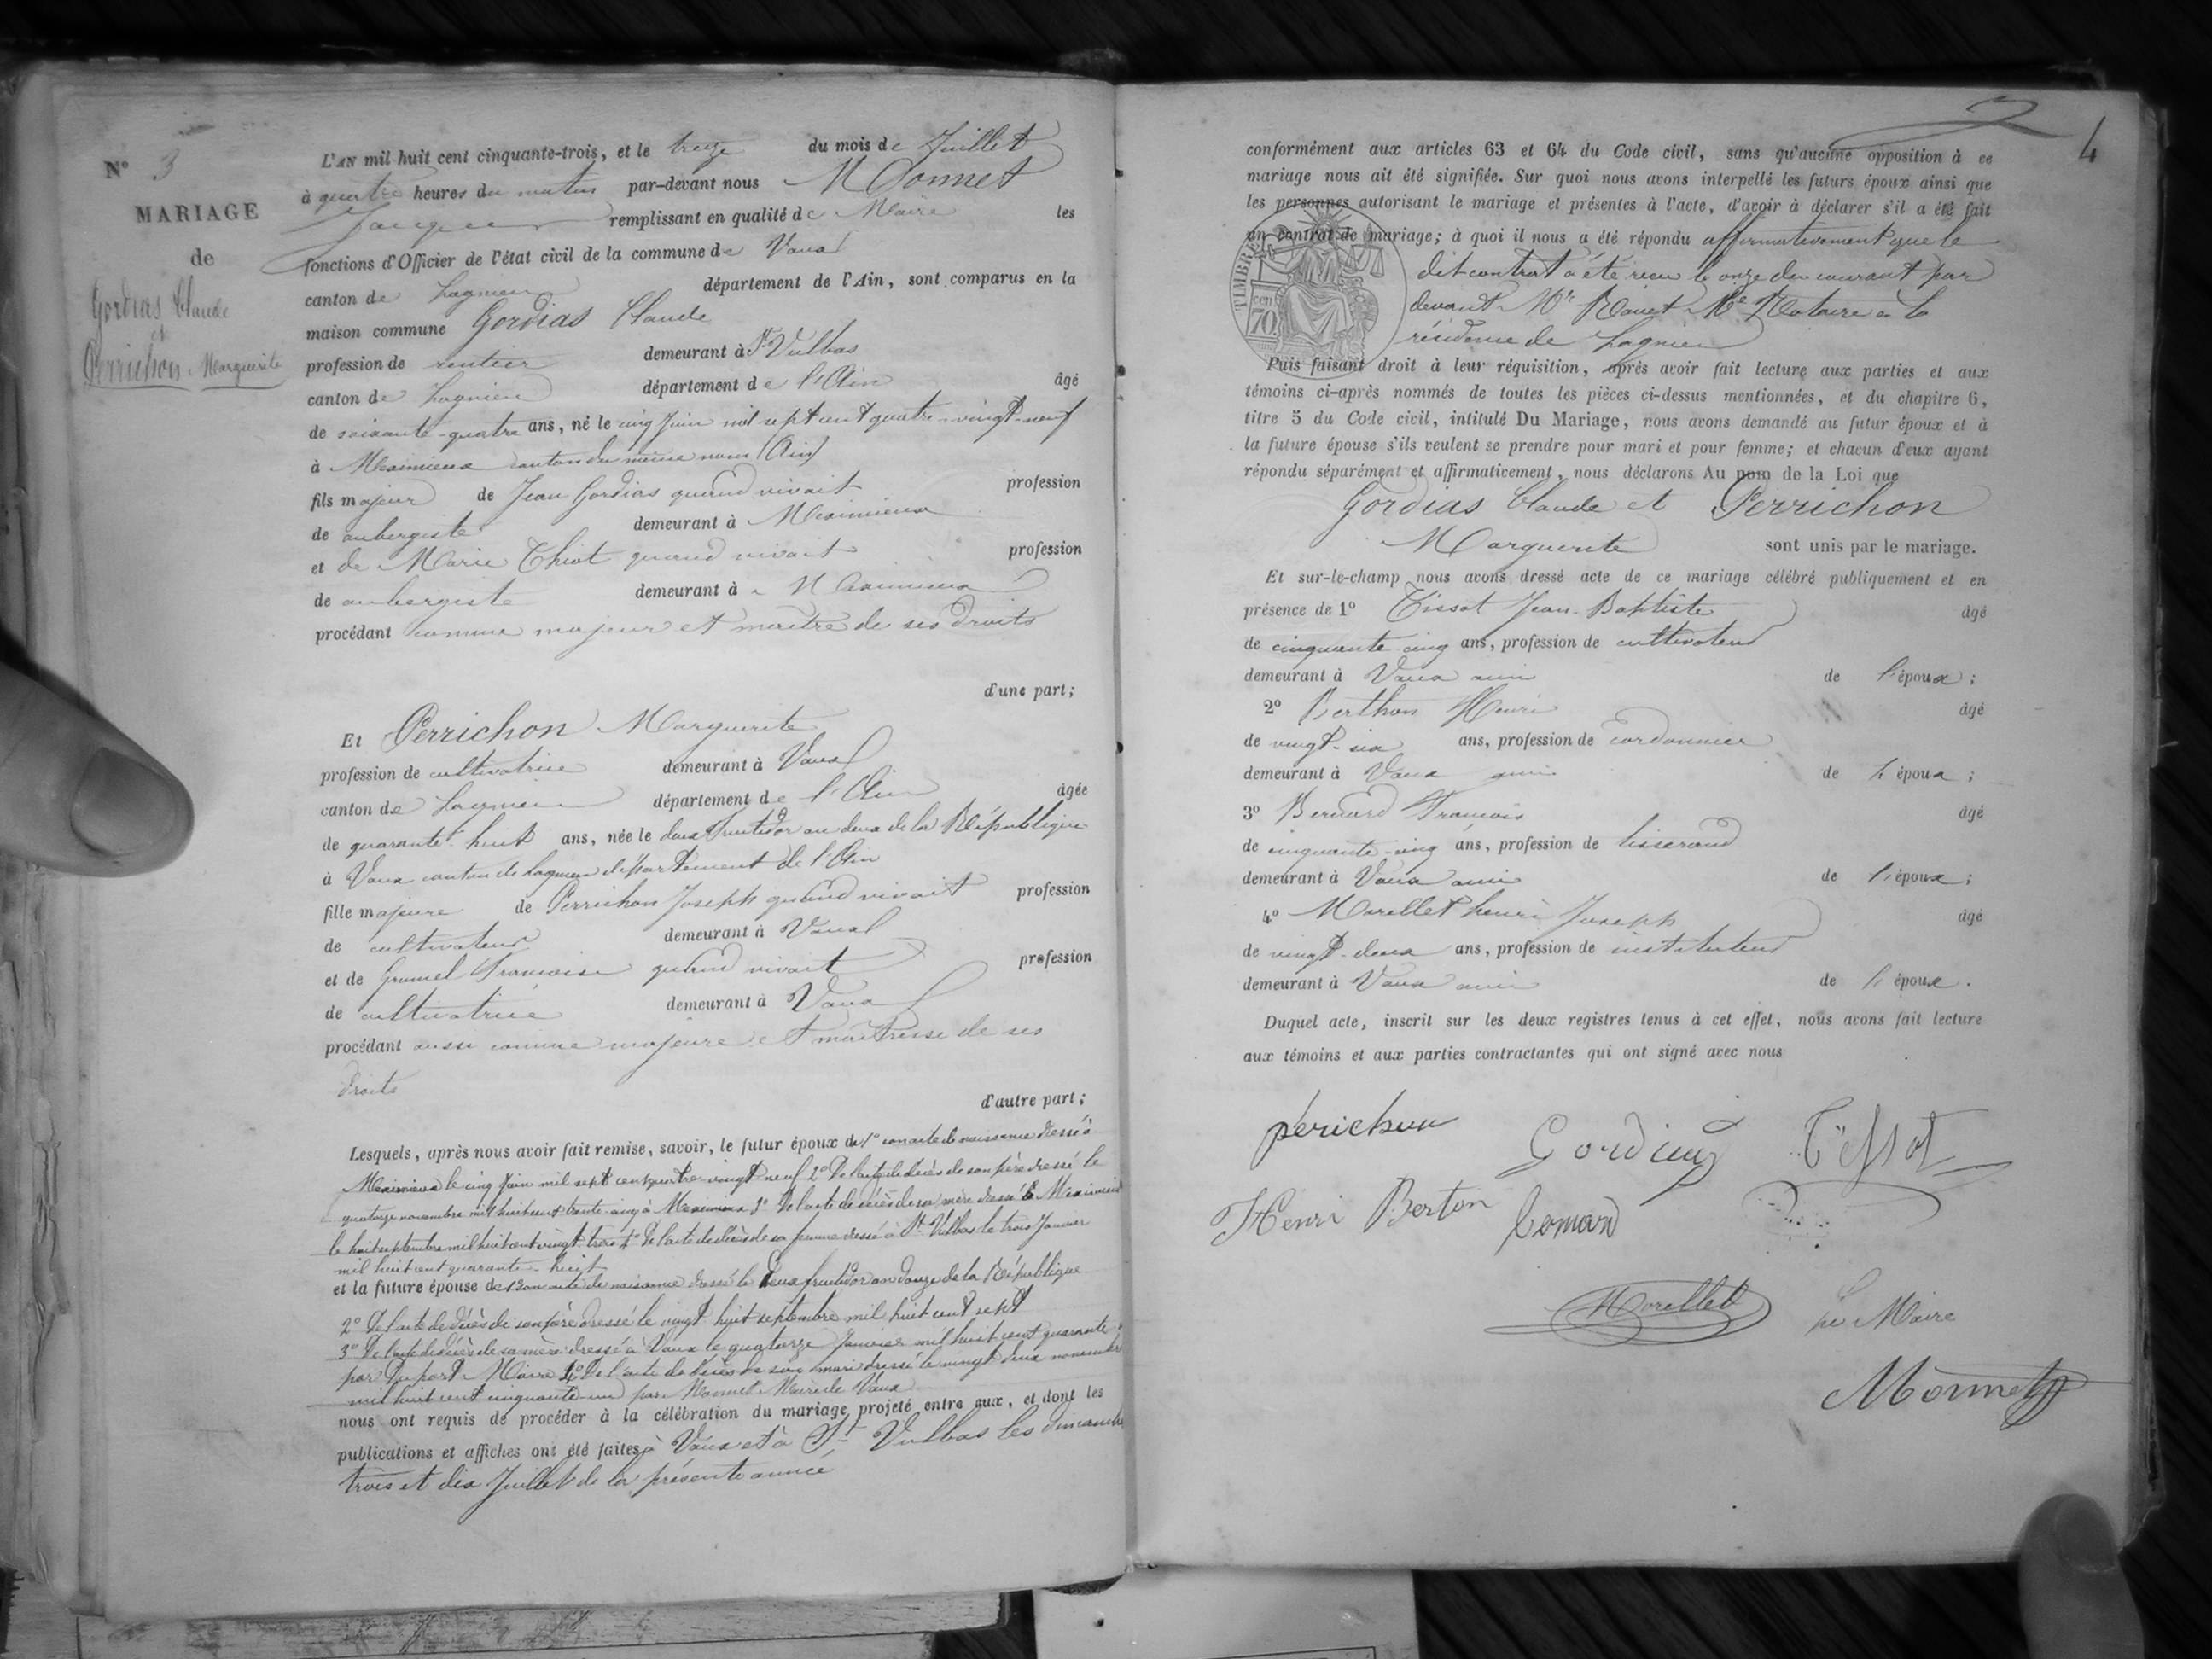 N° 3
MARIAGE
de
Gordias Claude
et
Perrichon Marguerite
L'AN mil huit cent cinquante-trois, et le treize du mois de Juillet
à quatre heures du matin par-devant nous Monnet
Jacques remplissant en qualité de Maire les
fonctions d'Officier de l'état civil de la commune de Vaux
canton de Lagnieu département de l'Ain, sont comparus en la
maison commune Gordias Claude
profession de rentier demeurant à St Vulbas
canton de Lagnieu département de l'Ain âgé
de soixante-quatre ans, né le cinq Juin mil sept cent quatre-vingt-neuf
à Meximieux canton du même nom (Ain)
fils majeur de Jean Gordias quand vivait profession
de aubergiste demeurant à Meximieux
et de Marie Thiot quand vivait profession
de aubergiste demeurant à Meximieux
procédant comme majeur et maître de ses droits
d'une part;
Et Perrichon Marguerite
profession de cultivatrice demeurant à Vaux
canton de Lagnieu département de l'Ain âgée
de quarante huit ans, née le deux fructidor an deux de la République
à Vaux canton de Lagnieu département de l'Ain
fille majeure de Perrichon Joseph quand vivait profession
de cultivateur demeurant à Vaux
et de Grumel Françoise quand vivait profession
de cultivatrice demeurant à Vaux
procédant aussi comme majeure et maîtresse de ses
droits
d'autre part;
Lesquels, après nous avoir fait remise, savoir, le futur époux de 1° son acte de naissance dressé à
Meximieux le cinq Juin mil sept cent quatre-vingt neuf 2° De l'acte de décès de son père dressé le
quatorze novembre mil huit cent trente-cinq à Meximieux 3° De l'acte de décès de sa mère dressé à Meximieux
le huit septembre mil huit cent vingt-trois 4° De l'acte de décès de sa femme dressé à St Vulbas le trois Janvier
mil huit cent quarante-huit
et la future épouse de 1° son acte de naissance dressé le deux fructidor an douze de la République
2° De l'acte de décès de son père dressé le vingt huit septembre mil huit cent sept
3° De l'acte de décès de sa mère dressé à Vaux le quatorze Janvier mil huit cent quarante
par Duport Maire 4° De l'acte de décès de son mari dressé le vingt deux novembre
mil huit cent cinquante-un par Monnet Maire de Vaux
nous ont requis de procéder à la célébration du mariage projeté entre eux, et dont les
publications et affiches ont été faites à Vaux et à St Vulbas les dimanches
trois et dix Juillet de la présente année
4
conformément aux articles 63 et 64 du Code civil, sans qu'aucune opposition à ce
mariage nous ait été signifiée. Sur quoi nous avons interpellé les futurs époux ainsi que
les personnes autorisant le mariage et présentes à l'acte, d'avoir à déclarer s'il a été fait
un contrat de mariage; à quoi il nous a été répondu affirmativement que le
dit contrat a été reçu le onze du courant par
devant Mr Notaire à la
résidence de Lagnieu
TIMBRE
cen
70
Puis faisant droit à leur réquisition, après avoir fait lecture aux parties et aux
témoins ci-après nommés de toutes les pièces ci-dessus mentionnées, et du chapitre 6,
titre 5 du Code civil, intitulé Du Mariage, nous avons demandé au futur époux et à
la future épouse s'ils veulent se prendre pour mari et pour femme; et chacun d'eux ayant
répondu séparément et affirmativement, nous déclarons Au nom de la Loi que
Gordias Claude et Perrichon
Marguerite sont unis par le mariage.
Et sur-le-champ nous avons dressé acte de ce mariage célébré publiquement et en
présence de 1° Tissot Jean-Baptiste âgé
de cinquante cinq ans, profession de cultivateur
demeurant à Vaux ami de l'époux;
2° Berthon Henri âgé
de vingt-six ans, profession de cordonnier
demeurant à Vaux ami de l'époux;
3° Bernard François âgé
de cinquante-cinq ans, profession de tisserand
demeurant à Vaux ami de l'époux;
4° Morellet henri Joseph âgé
de vingt-deux ans, profession de instituteur
demeurant à Vaux ami de l'époux.
Duquel acte, inscrit sur les deux registres tenus à cet effet, nous avons fait lecture
aux témoins et aux parties contractantes qui ont signé avec nous
périchon Gordias Tissot
Henri Berton
Morellet Le Maire
Monnet